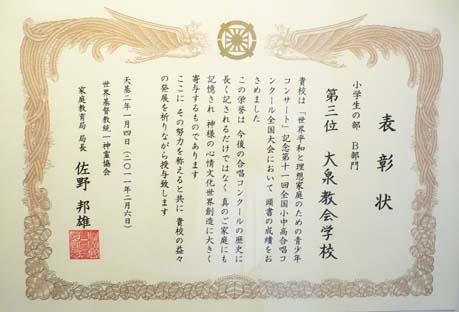 表彰状
小学生の部　B部門
第三位　大泉教会学校
貴校は「世界平和と理想家庭のための青少年
コンサート」記念第十一回全国小中高合唱コ
ンクール全国大会において　頭書の成績をお
さめました
この栄誉は　今後の合唱コンクールの歴史に
長く記されるだけではなく　真のご家庭にも
記憶され　神様の心情文化世界創造に大きく
寄与するものであります
ここに　その努力を称えると共に　貴校の益々
の発展を祈りながら授与致します
天基二年一月四日（二〇一一年二月六日）
世界基督教統一神霊協会
家庭教育局　局長　佐野　邦雄